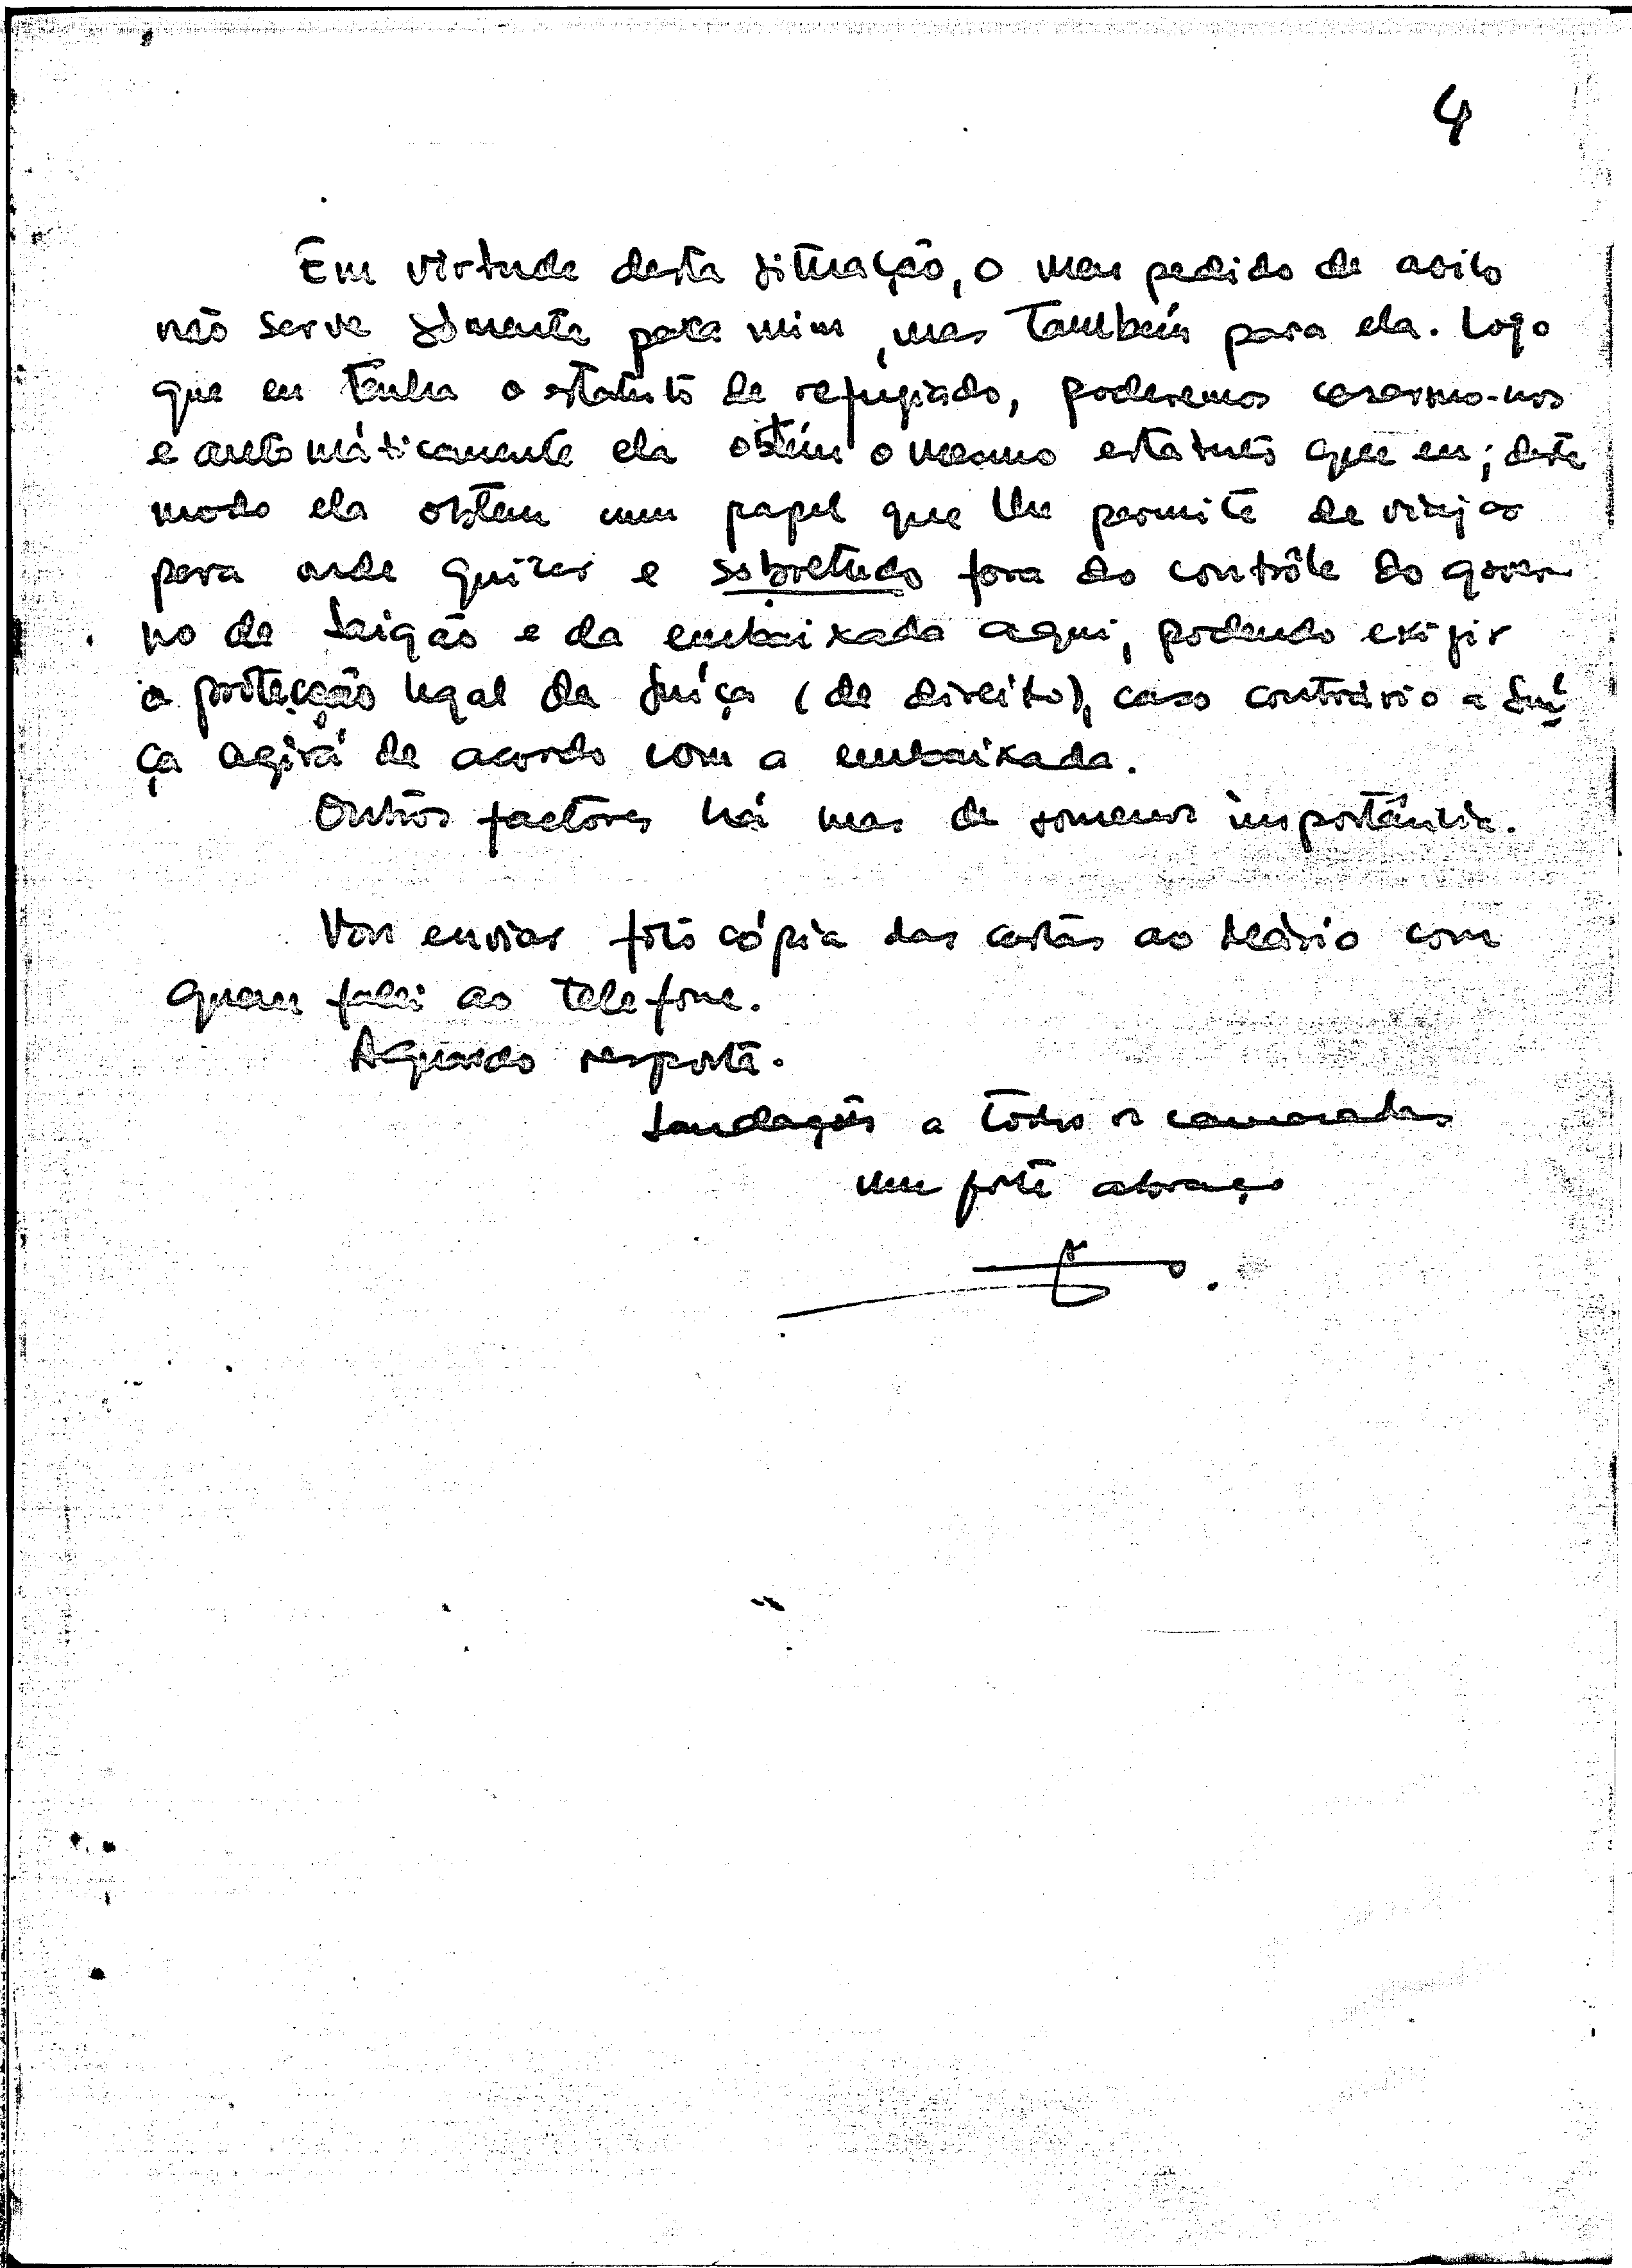 4
Em virtude desta situação, o meu pedido de asilo
não serve sòmente para mim, mas também para ela. Logo
que eu tenha o estatuto de refugiado, poderemos casarmo-nos
e automáticamente ela obtém o mesmo estatuto que eu; deste
modo ela obtem um papel que lhe permite de viajar
para onde quizer e sobretudo fora do contrôle do gover
no de Saigão e da embaixada aqui, podendo exigir
a protecção legal da Suiça (de direito), caso contrário a Suí
ça agirá de acordo com a embaixada.
Outros factores há mas de somenos importância.
Vou enviar fotocópia das cartas ao Mário com
quem falei ao telefone.
Aguardo resposta.
Saudações a todos os camaradas
um forte abraço